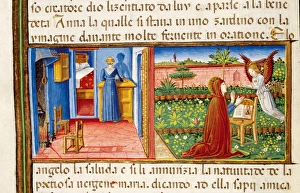 so creatore dio licentiato da luy e aparse a la bene
deta Anna la qualle si staua in uno zardino con la
ymagine dauante molte feruente in oratione. El
angelo la saluda e si li annunzia la natiuitade de la
pretiosa uergene maria. dicando ad ella sapi amica